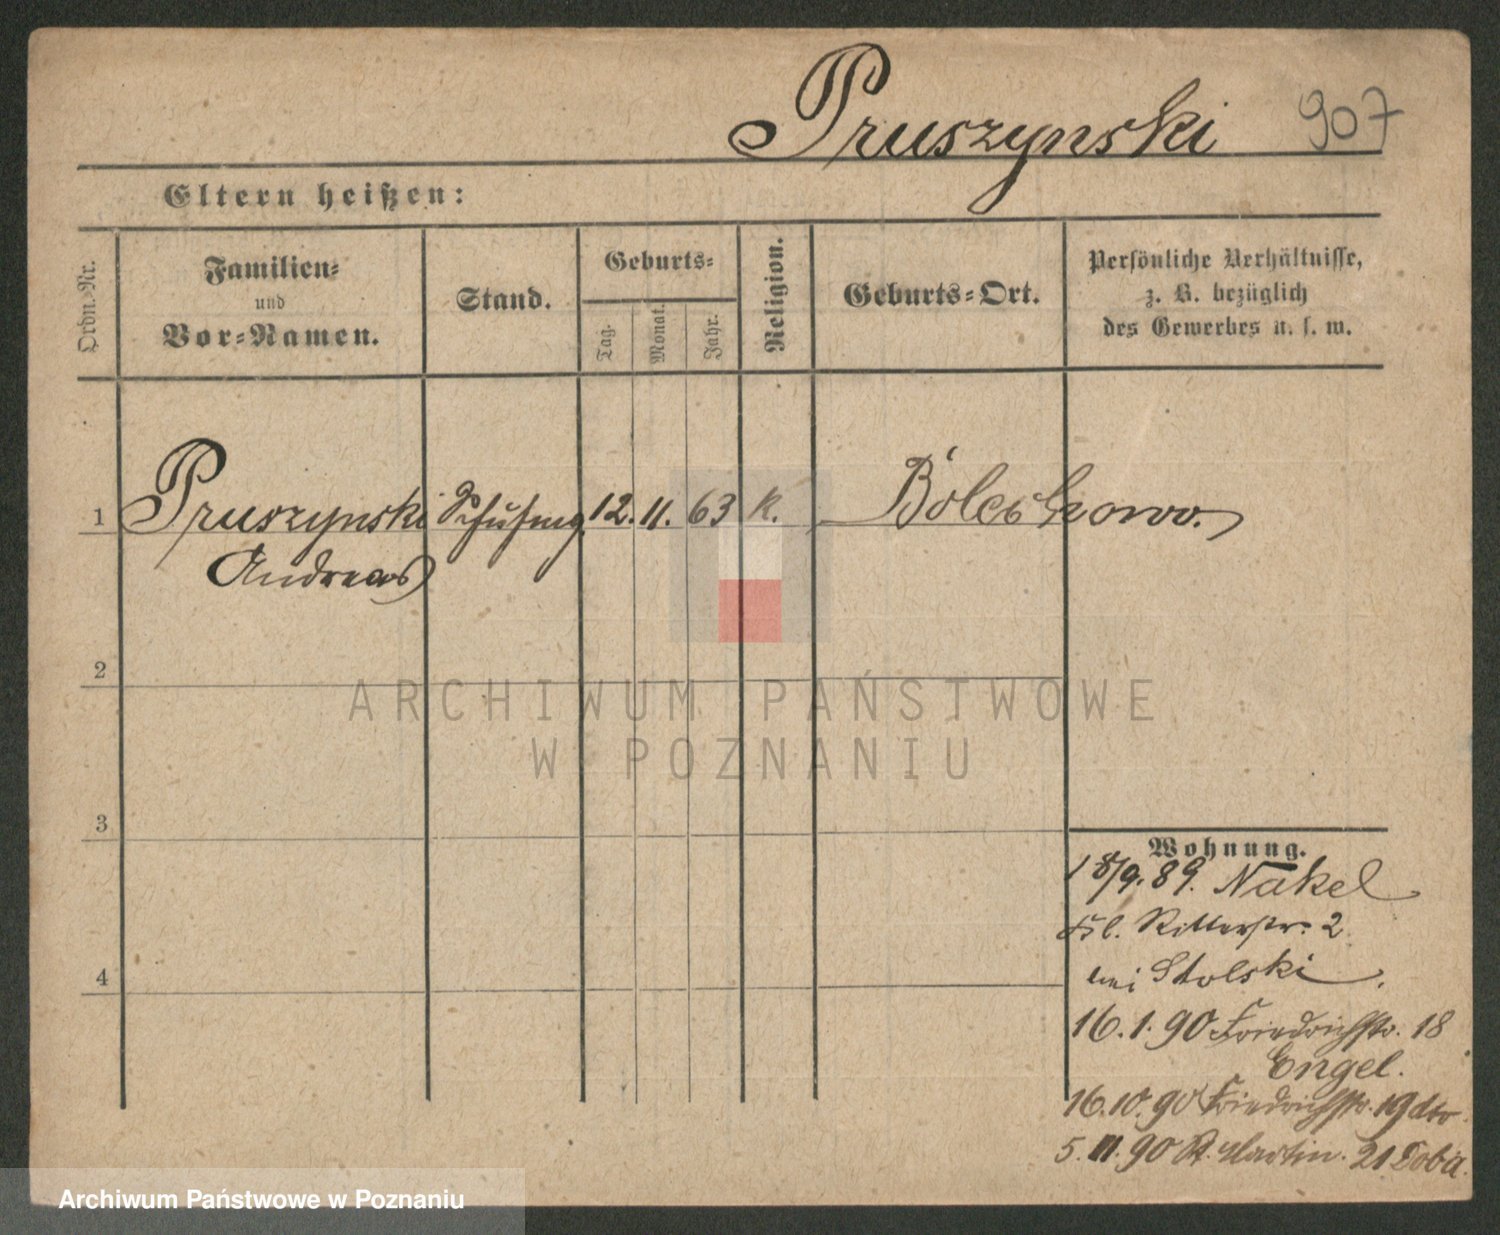 Pruszynski 907
Eltern heißen:
Ordn.-Nr.
Familien-
und
Vor-Namen.
Stand.
Geburts-
Tag.
Monat.
Jahr.
Religion.
Geburts-Ort.
Persönliche Verhältnisse,
z. B. bezüglich
des Gewerbes u. s. w.
1 Pruszynski 12. 11. 63 K.
Andreas
2
3
4
ARCHIWUM PAŃSTWOWE
W POZNANIU
Wohnung.
18/9. 89. Nakel
Kl. Ritterstr. 2
bei Stolski.
16. 1. 90 Friedrichstr. 18
Engel.
16. 10. 90 Friedrichstr. 19 dto
5. 11. 90 St. Martin. 21 Doba
Archiwum Państwowe w Poznaniu